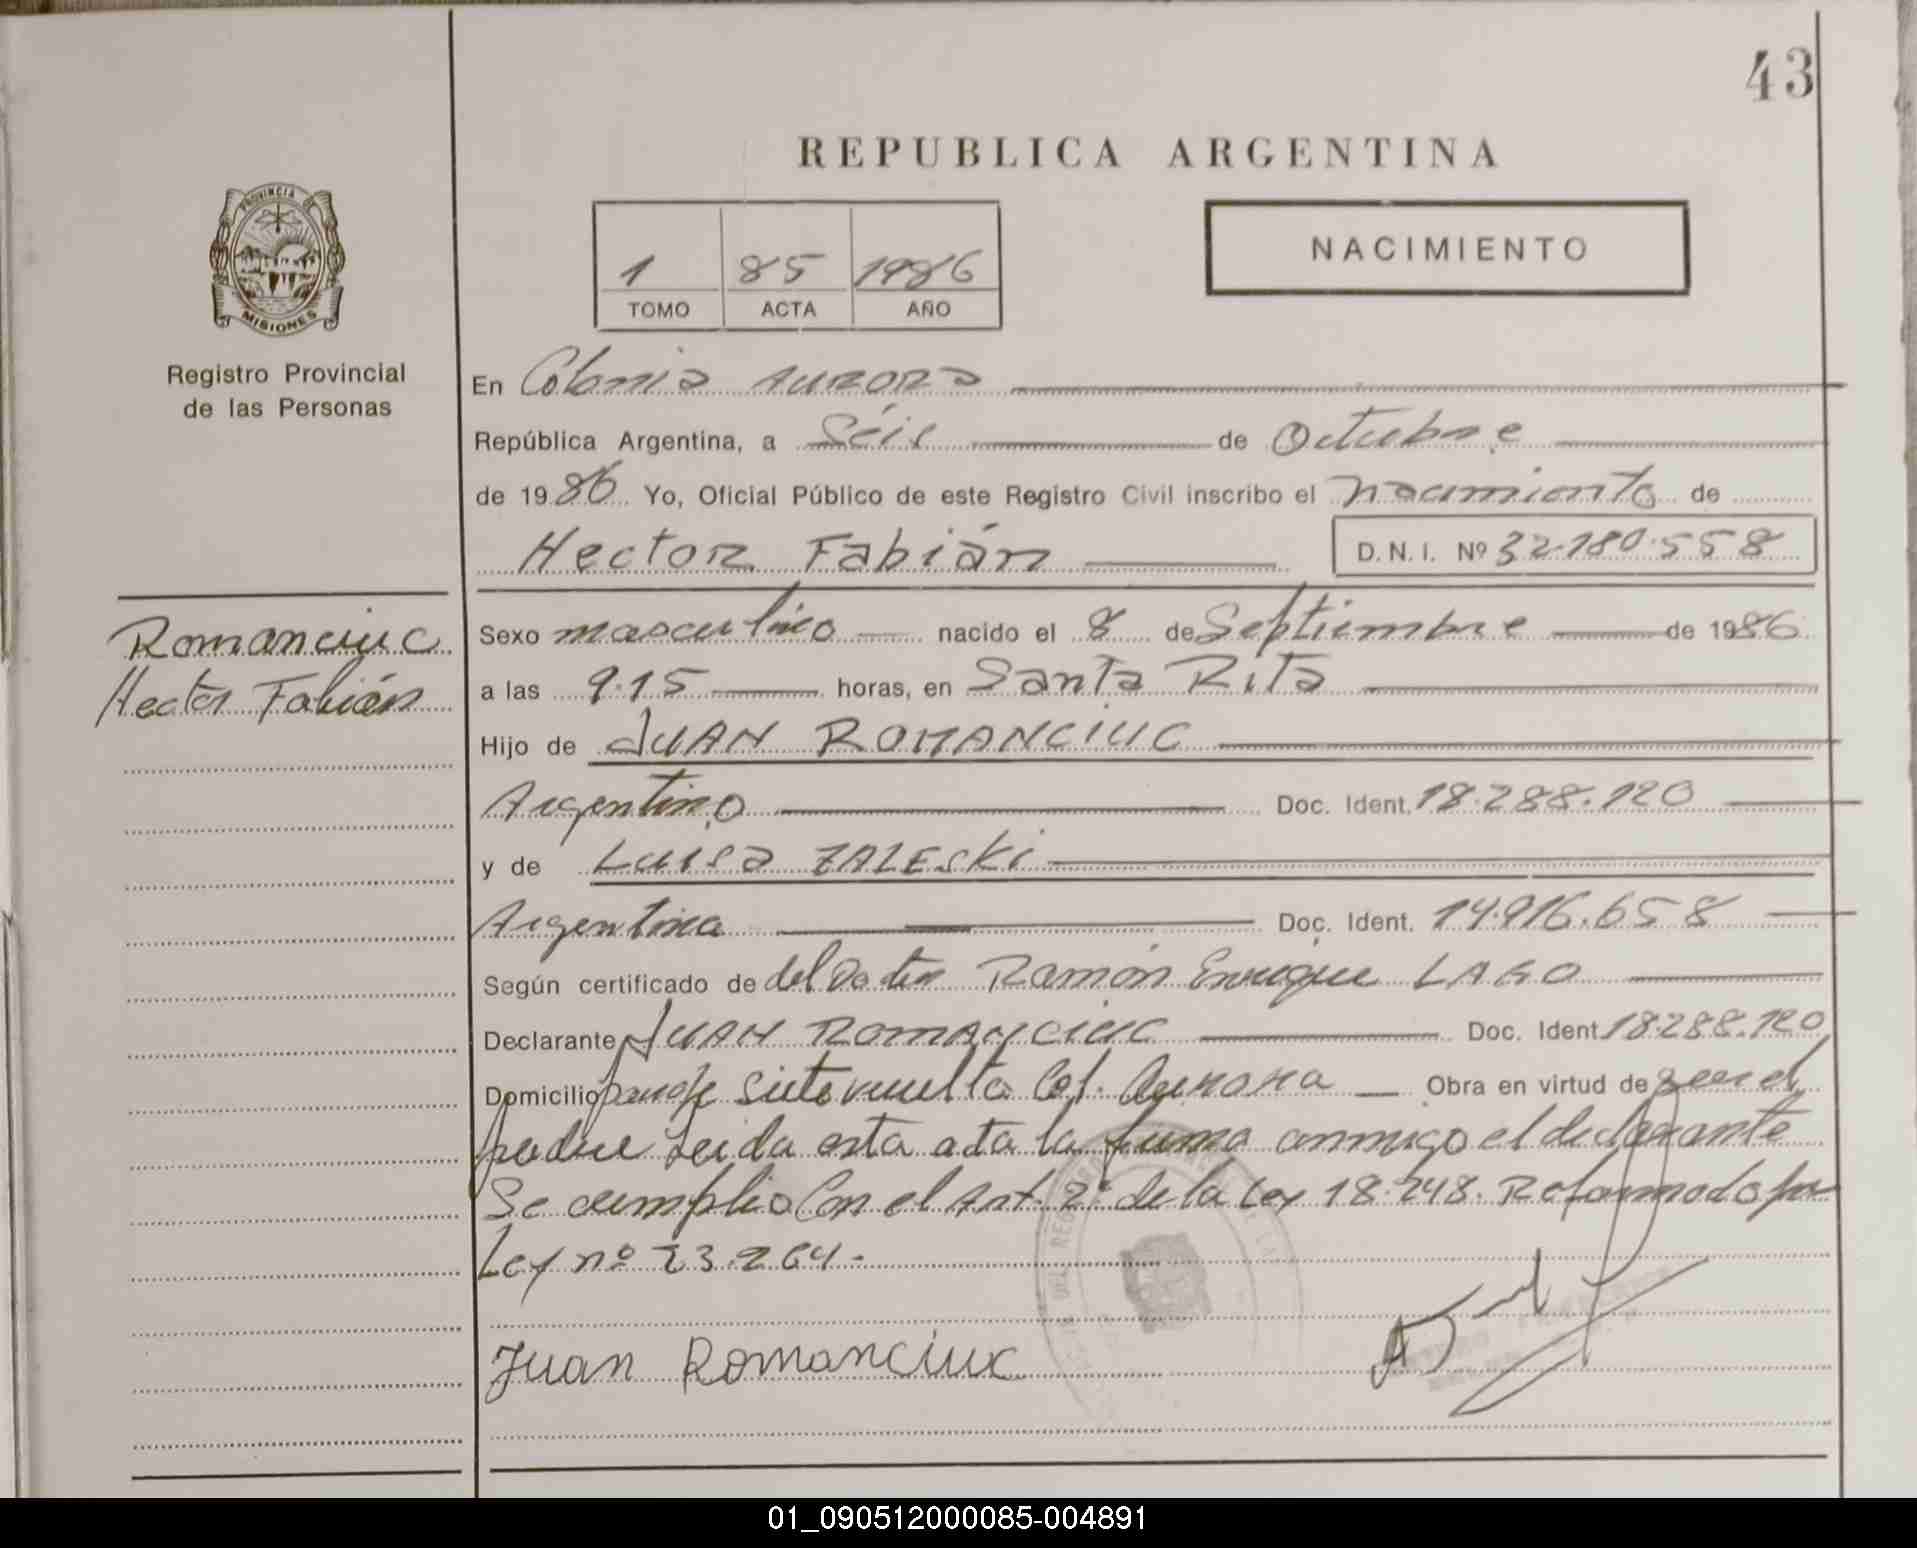 43
REPUBLICA ARGENTINA
1 85 1986
TOMO ACTA AÑO
NACIMIENTO
PROVINCIA DE
MISIONES
Registro Provincial
de las Personas
En Colonia Aurora
República Argentina, a Séis de Octubre
de 1986 Yo, Oficial Público de este Registro Civil inscribo el nacimiento de
Hector Fabián D.N.I. Nº 32.180.558
Romanciuc
Hector Fabián
Sexo masculino nacido el 8 de Septiembre de 1986
a las 9.15 horas, en Santa Rita
Hijo de JUAN ROMANCIUC
Argentino Doc. Ident. 18.288.120
y de Luisa ZALESKi
Argentina Doc. Ident. 14.916.658
Según certificado de del Doctor Ramón Enrique LAGO
Declarante JUAN ROMANCIUC Doc. Ident. 18.288.120
Domicilio paraje siete vuelta Col. Aurora Obra en virtud de ser el
padre Leida esta acta la firma conmigo el declarante
Se cumplio Con el Art. 2º de la Ley 18.248. Reformado por
Ley nº 23.264.-
Juan Romanciuc
01_090512000085-004891